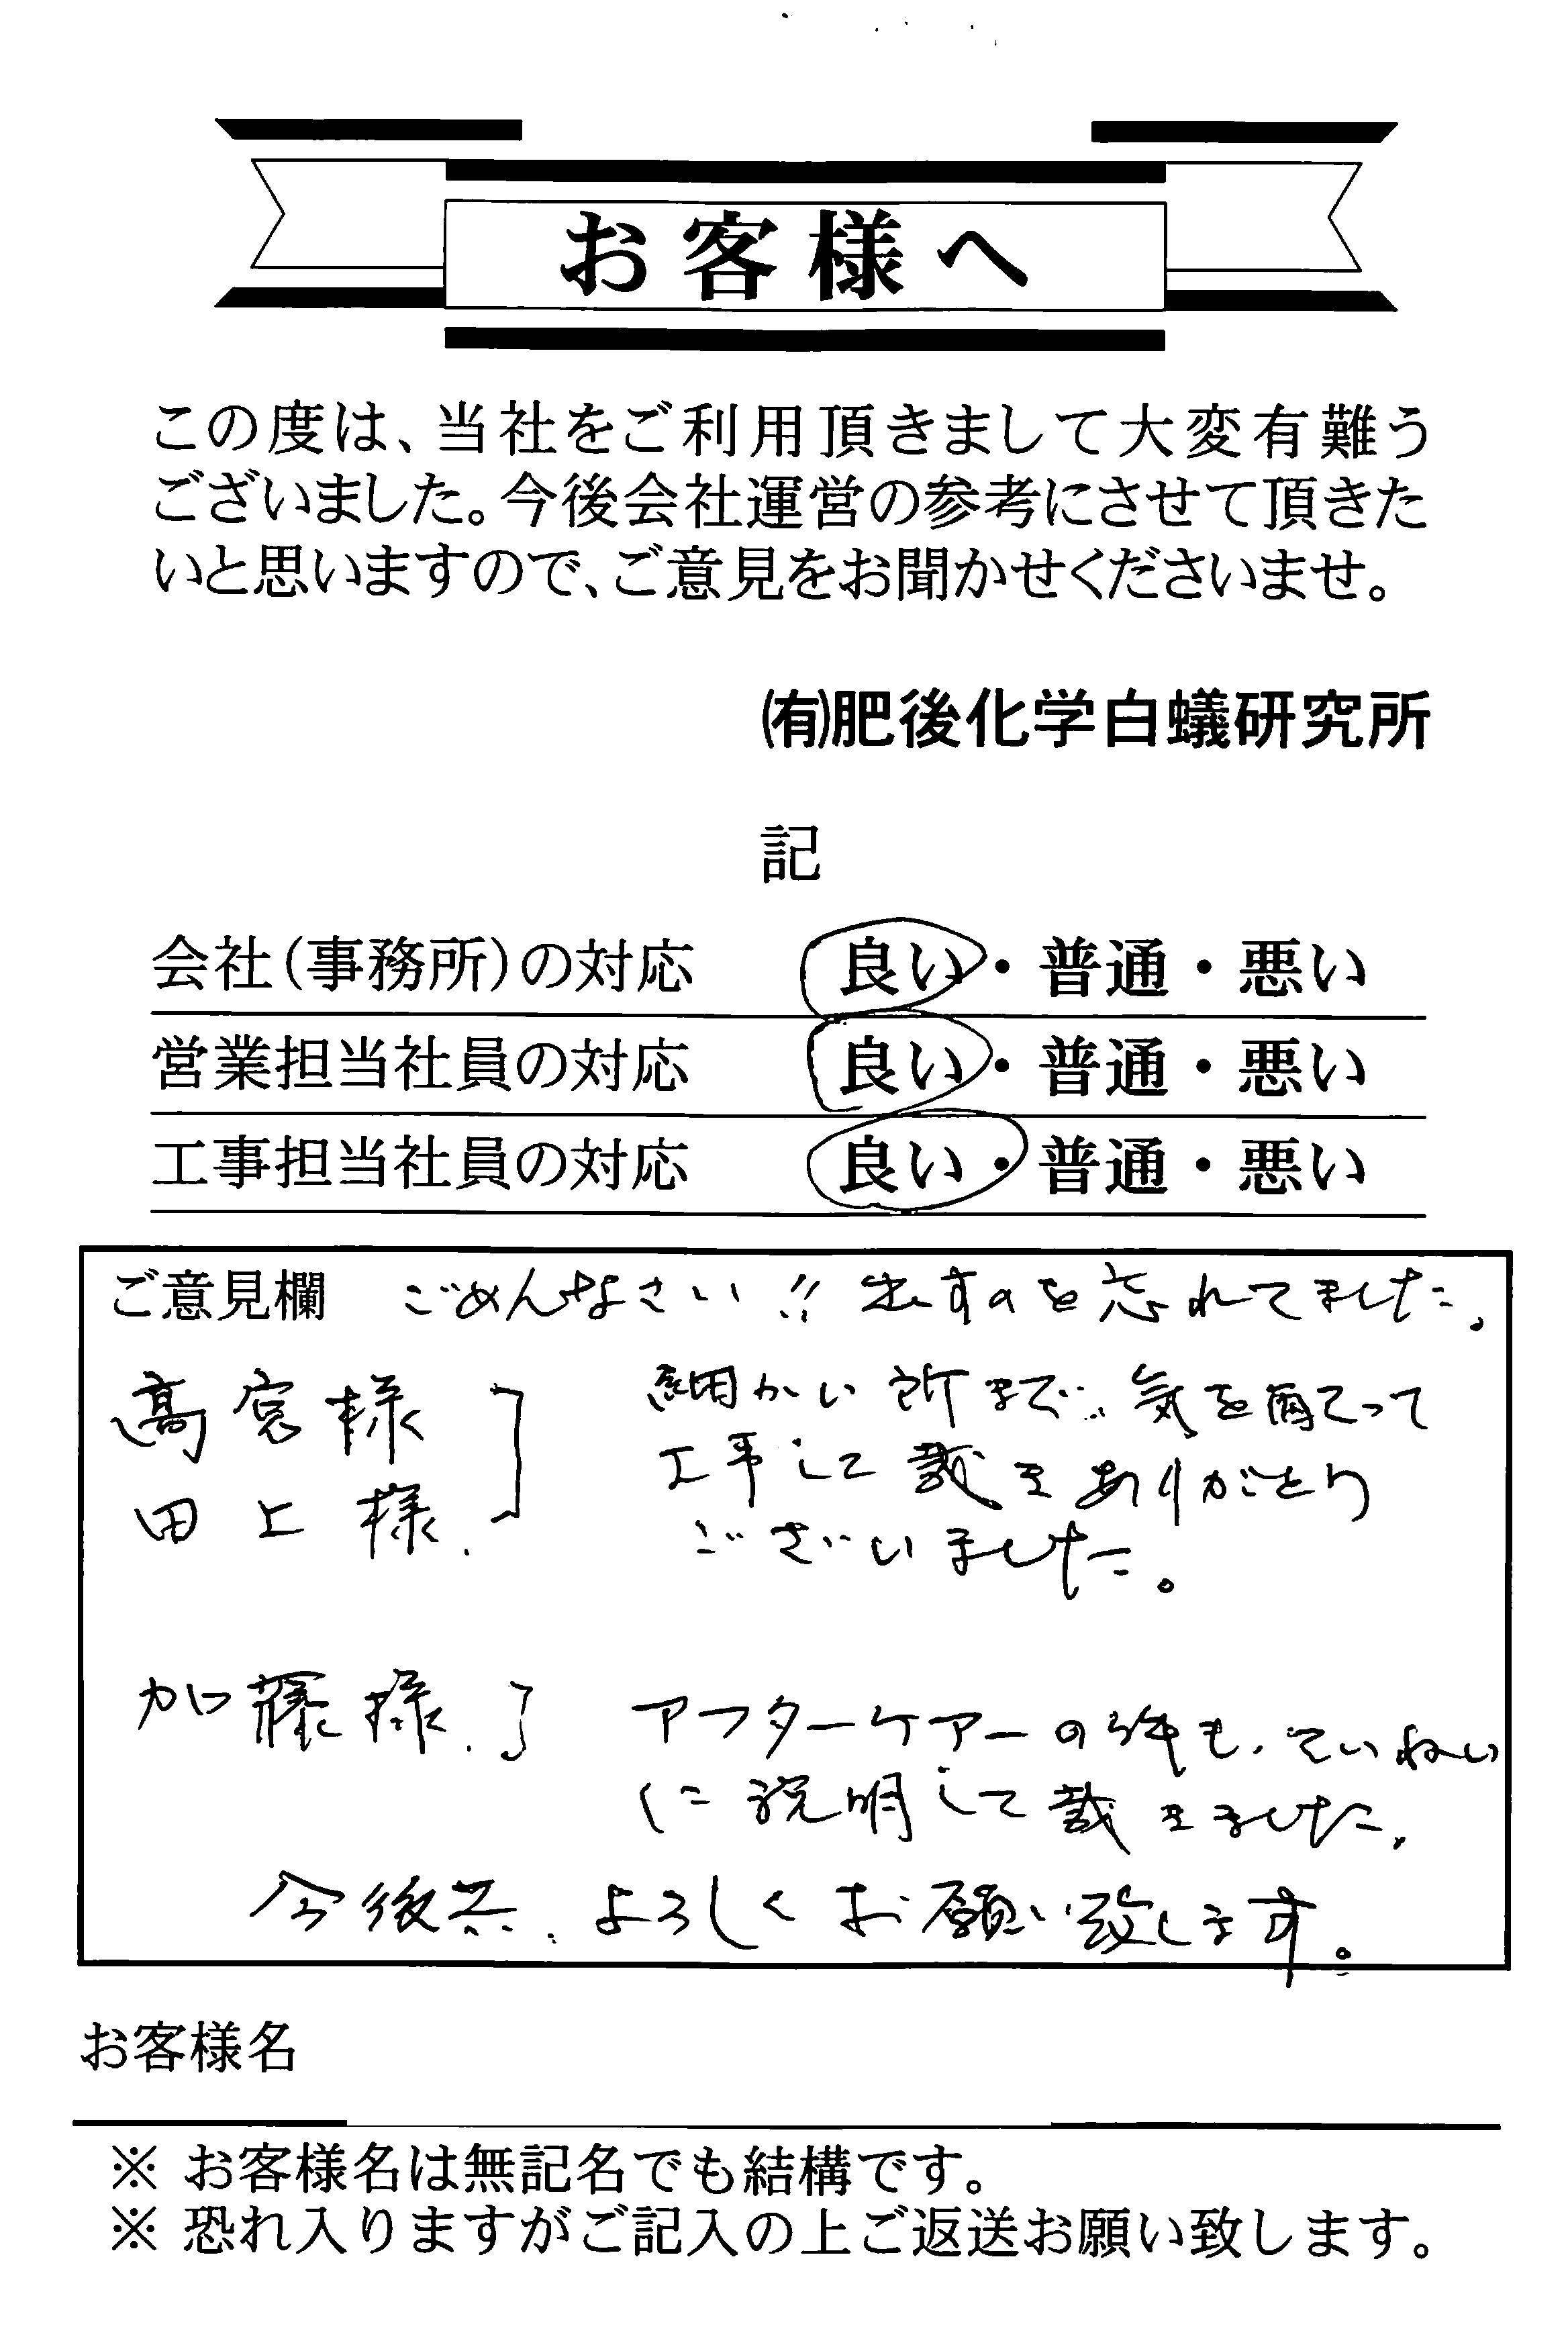 お客様へ
この度は、当社をご利用頂きまして大変有難う
ございました。今後会社運営の参考にさせて頂きた
いと思いますので、ご意見をお聞かせくださいませ。
㈲肥後化学白蟻研究所
記
会社(事務所)の対応 良い・普通・悪い
営業担当社員の対応 良い・普通・悪い
工事担当社員の対応 良い・普通・悪い
ご意見欄 ごめんなさい!! 出すのを忘れてました。
髙宮様
田上様.
細かい所まで 気を
工事して戴きありがとう
ございました。
加藤様.
アフターケアーの件も、ていねい
に説明して戴きました。
今後共、よろしくお願い致します。
お客様名
※ お客様名は無記名でも結構です。
※ 恐れ入りますがご記入の上ご返送お願い致します。